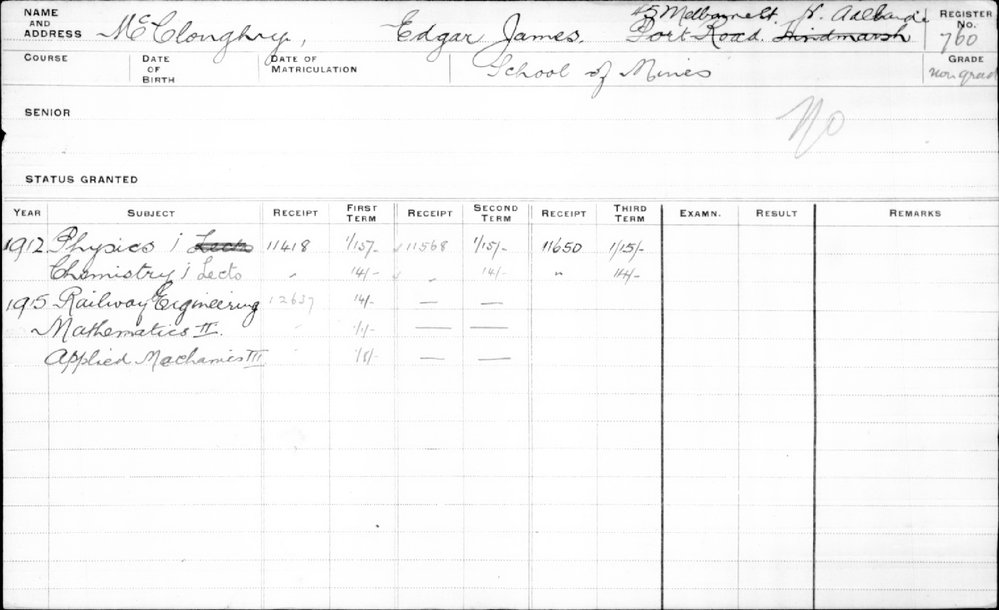 NAME AND ADDRESS McCloughry, Edgar James. 45 Melbourne St. N. Adelaide Port Road. Hindmarsh REGISTER No. 760
COURSE DATE OF BIRTH DATE OF MATRICULATION School of Mines GRADE non grad
SENIOR No
STATUS GRANTED
YEAR SUBJECT RECEIPT FIRST TERM RECEIPT SECOND TERM RECEIPT THIRD TERM EXAMN. RESULT REMARKS
1912 Physics i Lects 11418 1/15/- 11568 1/15/- 11650 1/15/-
Chemistry i Lects " 14/- " 14/- " 14/-
1915 Railway Engineering 12637 14/- — —
Mathematics II. " — —
Applied Mechanics III " — —